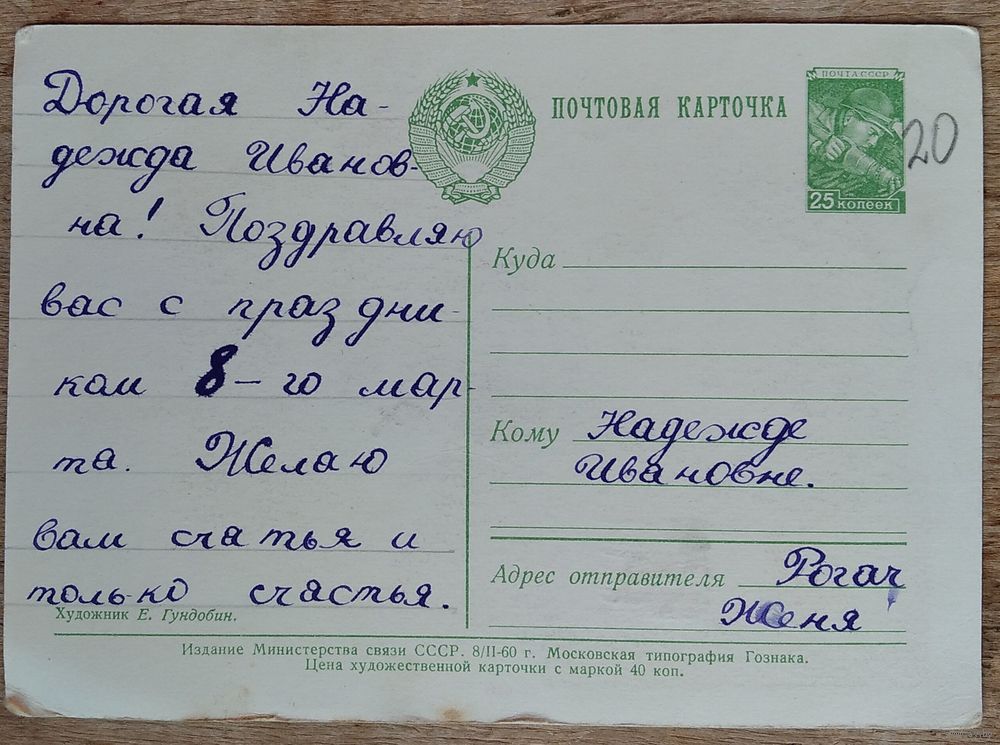 Дорогая На-
дежда Иванов-
на! Поздравляю
вас с праздни-
ком 8-го мар-
та. Желаю
вам счастья и
только счастья.
Художник Е. Гундобин.
ПОЧТОВАЯ КАРТОЧКА
ПОЧТА СССР
25 копеек
20
Куда
Кому Надежде
Ивановне.
Адрес отправителя Рогач
Женя
Издание Министерства связи СССР. 8/II-60 г. Московская типография Гознака.
Цена художественной карточки с маркой 40 коп.